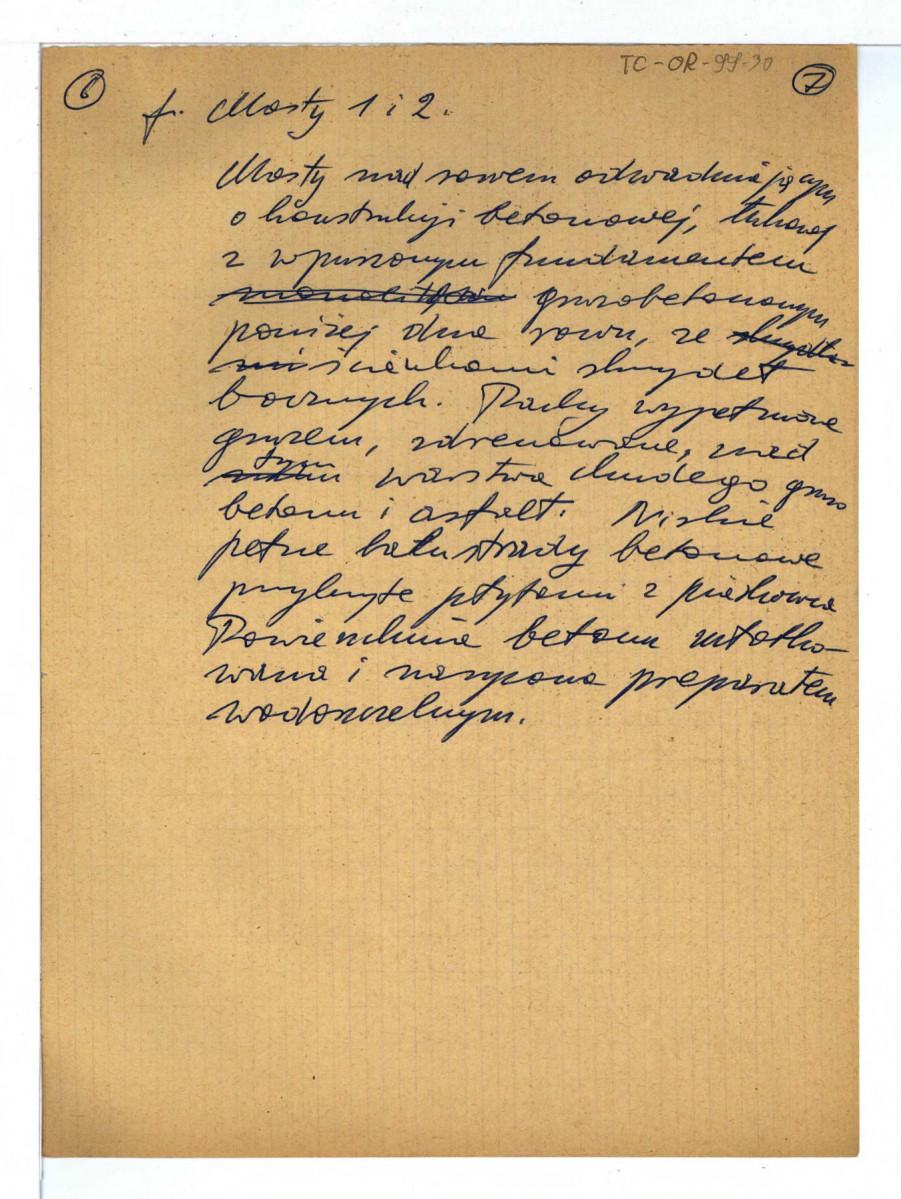 TC-OR-99-30
6 7
f. Mosty 1 i 2.
Mosty nad rowem odwadniającym
o konstrukcji betonowej, łukowej
z wpuszonym fundamentem
gruzobetonowym
poniżej dna rowu, ze
ściankami skrzydeł
bocznych. Pachy wypełnione
gruzem, zdrenowane, nad
tym warstwa chudego gruzo
betonu i asfalt. Niskie
pełne balustrady betonowe
przykryte płytami z piaskowca
Powierzchnia betonu młotko-
wana i nasycona preparatem
wodoszczelnym.